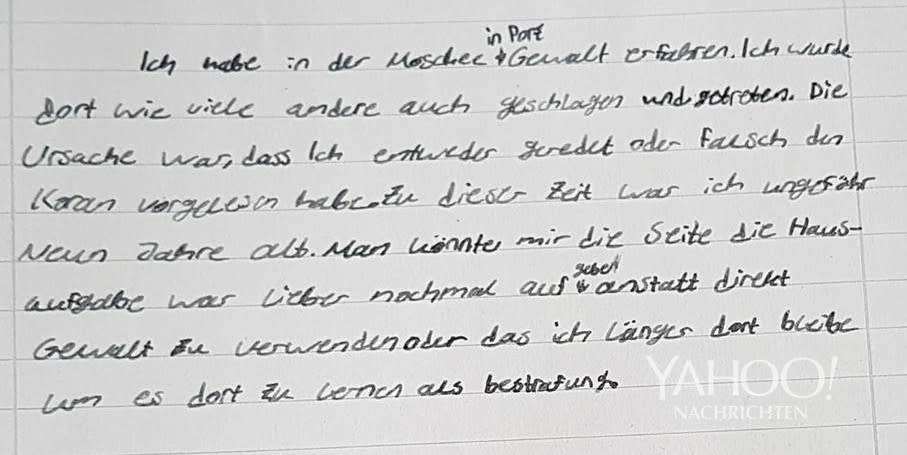 Ich habe in der Moschee in Porz Gewalt erfahren. Ich wurde
dort wie viele andere auch geschlagen und getreten. Die
Ursache war, dass Ich entweder geredet oder falsch den
Koran vorgelesen habe. Zu dieser Zeit war ich ungefähr
Neun Jahre alt. Man könnte mir die Seite die Haus-
aufgabe war lieber nochmal auf geben anstatt direkt
Gewalt zu verwenden oder das ich länger dort bleibe
um es dort zu lernen als bestrafung.
YAHOO!
NACHRICHTEN